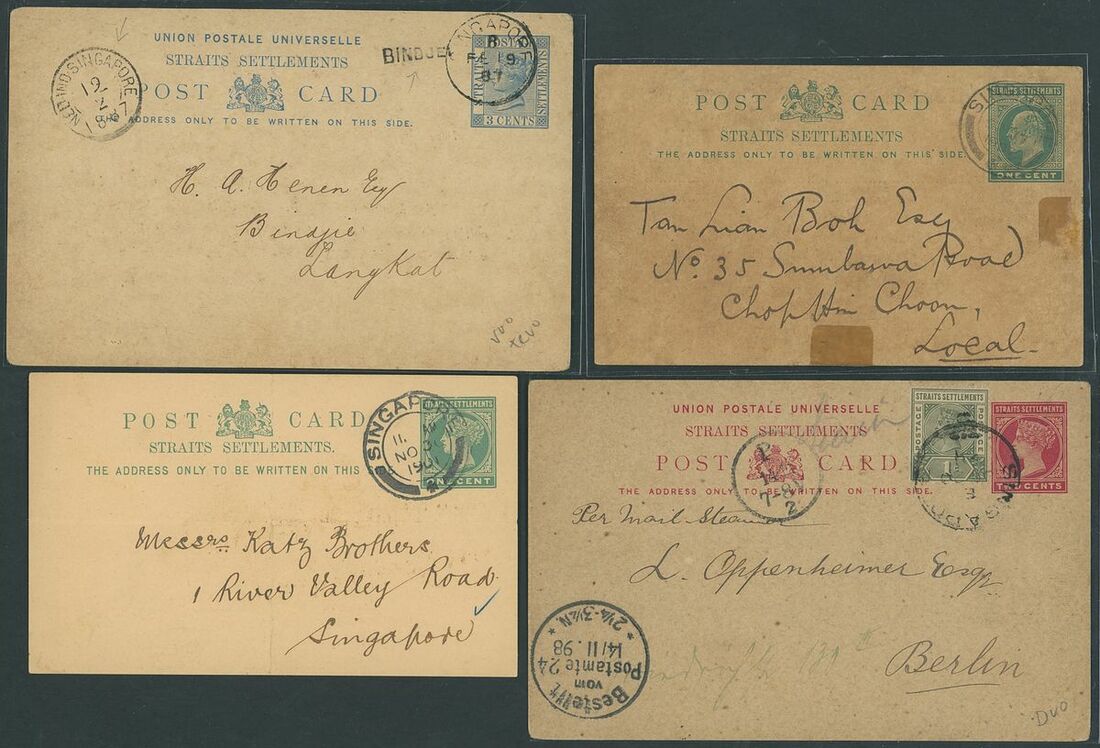 UNION POSTALE UNIVERSELLE
STRAITS SETTLEMENTS
POST CARD
THE ADDRESS ONLY TO BE WRITTEN ON THIS SIDE.
NED:IND:SINGAPORE
12
2
1887
BINDJE
SINGAPORE
FE 19
87
STRAITS
SETTLEMENTS
3 CENTS
H. A. Henen Esq
Bindjie
Langkat
POST CARD
STRAITS SETTLEMENTS
THE ADDRESS ONLY TO BE WRITTEN ON THIS SIDE.
STRAITS SETTLEMENTS
ONE CENT
Tan Lian Boh Esq
No. 35 Sumbawa Road
Chop Hin Choon,
Local.
POST CARD
STRAITS SETTLEMENTS.
THE ADDRESS ONLY TO BE WRITTEN ON THIS
SINGAPORE
NO 3
STRAITS SETTLEMENTS
ONE CENT
Messrs Katz Brothers
1 River Valley Road
Singapore
UNION POSTALE UNIVERSELLE
STRAITS SETTLEMENTS
POST CARD
THE ADDRESS ONLY TO BE WRITTEN ON THIS SIDE.
STRAITS SETTLEMENTS
POSTAGE
POSTAGE
1
STRAITS SETTLEMENTS
TWO CENTS
Per Mail Steamer
L. Oppenheimer Esqr
Berlin
Bestellt
vom
Postamte 24
14/11.98
* 2¼-3½N. *